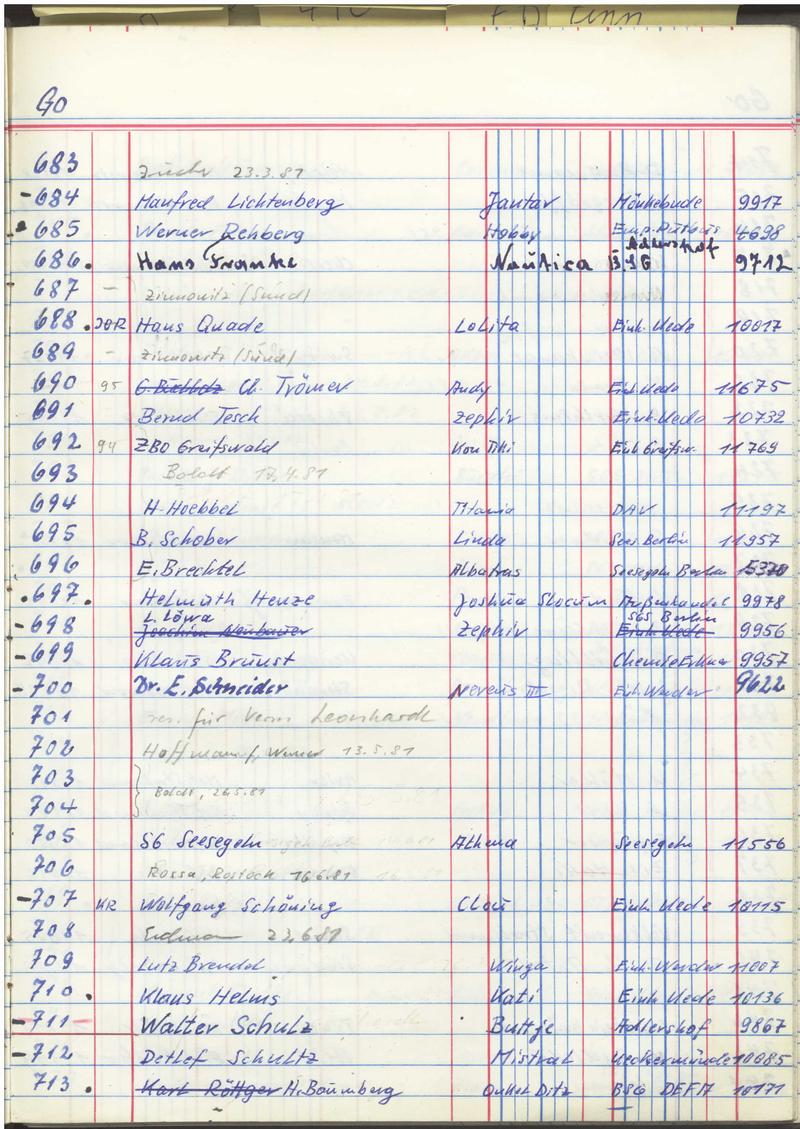 GO
683 23.3.81
-684 Manfred Lichtenberg Jantar Mönkebude 9917
685 Werner Rehberg Hobby 4698
Adlershof
686. Hans Franke Nautica BSG 9712
687 - Zinnowitz (Sund)
688. JOR Hans Quade Lolita Einh. Uede 10017
689 - Zinnowitz (Sund)
690 95 G. Buchholz Ch. Trömer Andy Einh. Uede 11675
691 Bernd Tesch Zephir Einh. Uede 10732
692 94 ZBO Greifswald Kon Tiki Einh Greifsw. 11769
693 Boldt 17.4.81
694 H. Hoebbel Titania DAV 11197
695 B. Schober Linda Sees. Berlin 11957
696 E. Brechtel Albatros Seesegeln Berlin 15370
.697. Helmuth Henze Joshua Slocum Außenhandel 9978
L. Löwa SGS Berlin
-698 Joachim Neubauer Zephir Einh. Uede 9956
-699 Klaus Brüust Chemie Erkner 9957
-700 Dr. E. Schneider Nereus III Einh. Werder 9622
701 res. für Leonhardt
702 Hoffmann, Werner 13.5.81
703
Boldt, 26.5.81
704
705 SG Seesegeln Athena Seesegeln 11556
706 Rossa, Rostock 16.6.81
-707 KR Wolfgang Schöning Clou Einh. Uede 10115
708 Erdmann 23.6.81
709 Lutz Brendel Winga Einh. Werder 11007
710. Klaus Helms Kati Einh Uede 10136
-711 Walter Schulz Buttje Adlershof 9867
-712 Detlef Schultz Mistral Ueckermünde 10085
713. Karl Röttger H. Baumberg Onkel Ditz BSG DEFA 10171